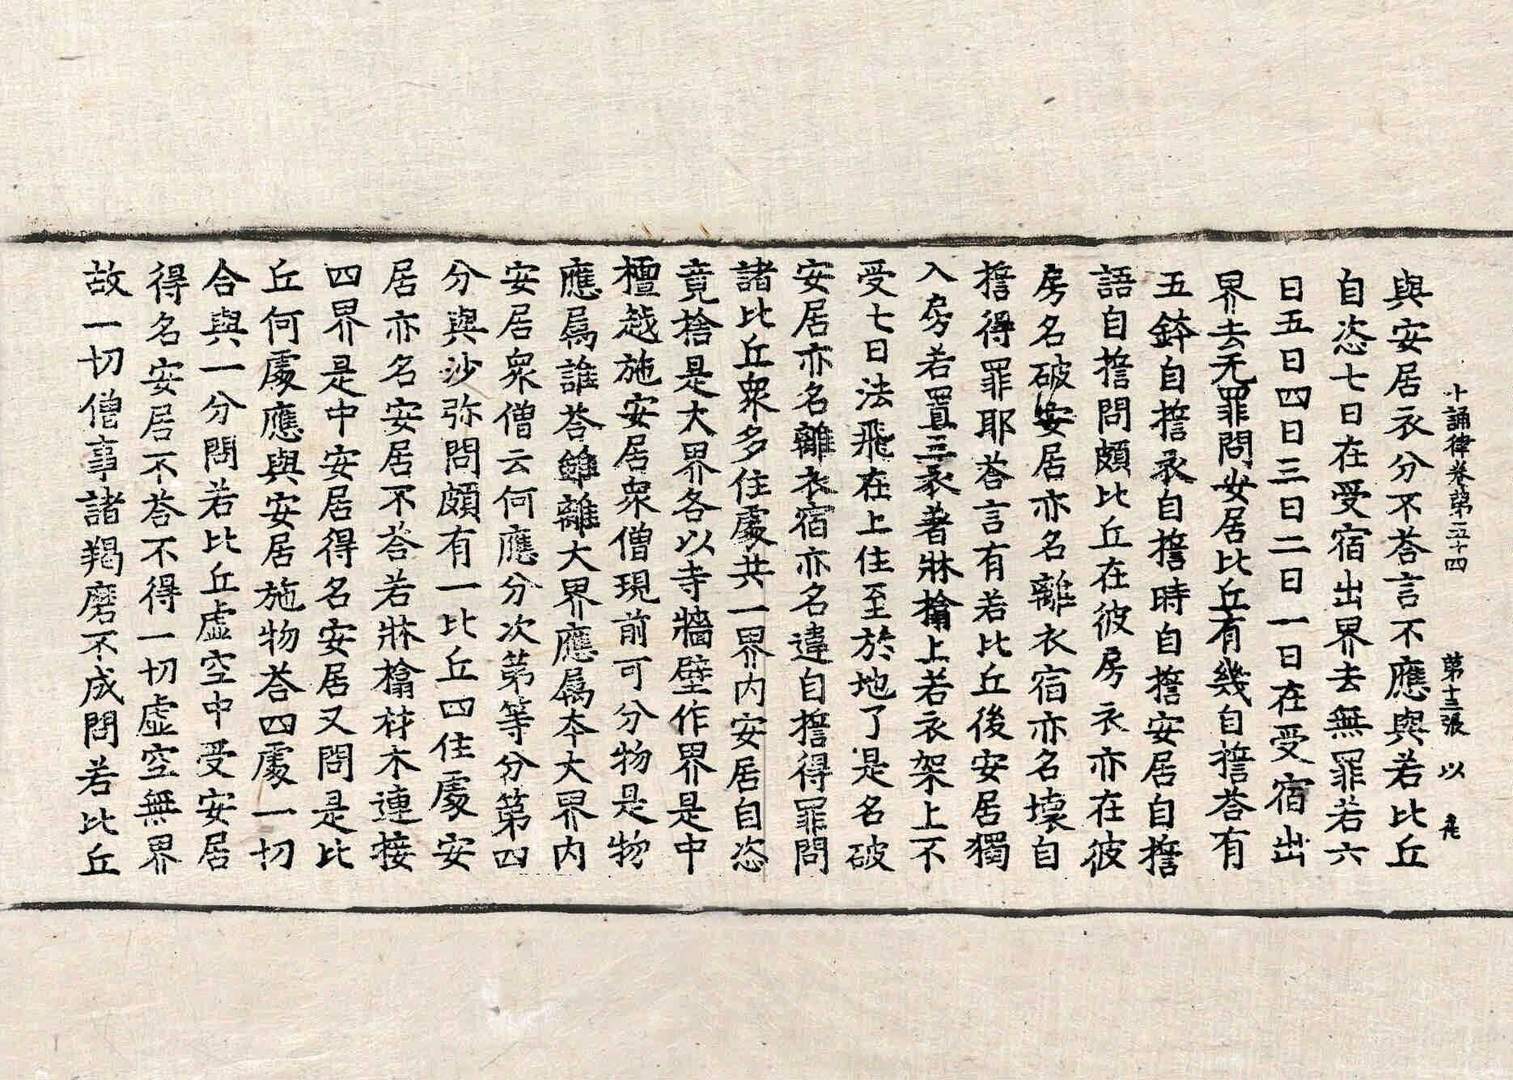 十誦律卷第五十四　第十三張　以
與安居衣分不荅言不應與若比丘
自恣七日在受宿出界去無罪若六
日五日四日三日二日一日在受宿出
界去无罪問安居比丘有幾自擔荅有
五鉢自擔衣自擔時自擔安居自擔
語自擔問頗比丘在彼房衣亦在彼
房名破安居亦名離衣宿亦名壞自
擔得罪耶荅言有若比丘後安居獨
入房若置三衣著牀橝上若衣架上不
受七日法飛在上住至於地了是名破
安居亦名離衣宿亦名違自擔得罪問
諸比丘衆多住處共一界內安居自恣
竟捨是大界各以寺牆壁作界是中
檀越施安居衆僧現前可分物是物
應屬誰荅雖離大界應屬本大界內
安居衆僧云何應分次第等分第四
分與沙弥問頗有一比丘四住處安
居亦名安居不荅若牀橝材木連接
四界是中安居得名安居又問是比
丘何處應與安居施物荅四處一切
合與一分問若比丘虛空中受安居
得名安居不荅不得一切虛空無界
故一切僧事諸羯磨不成問若比丘